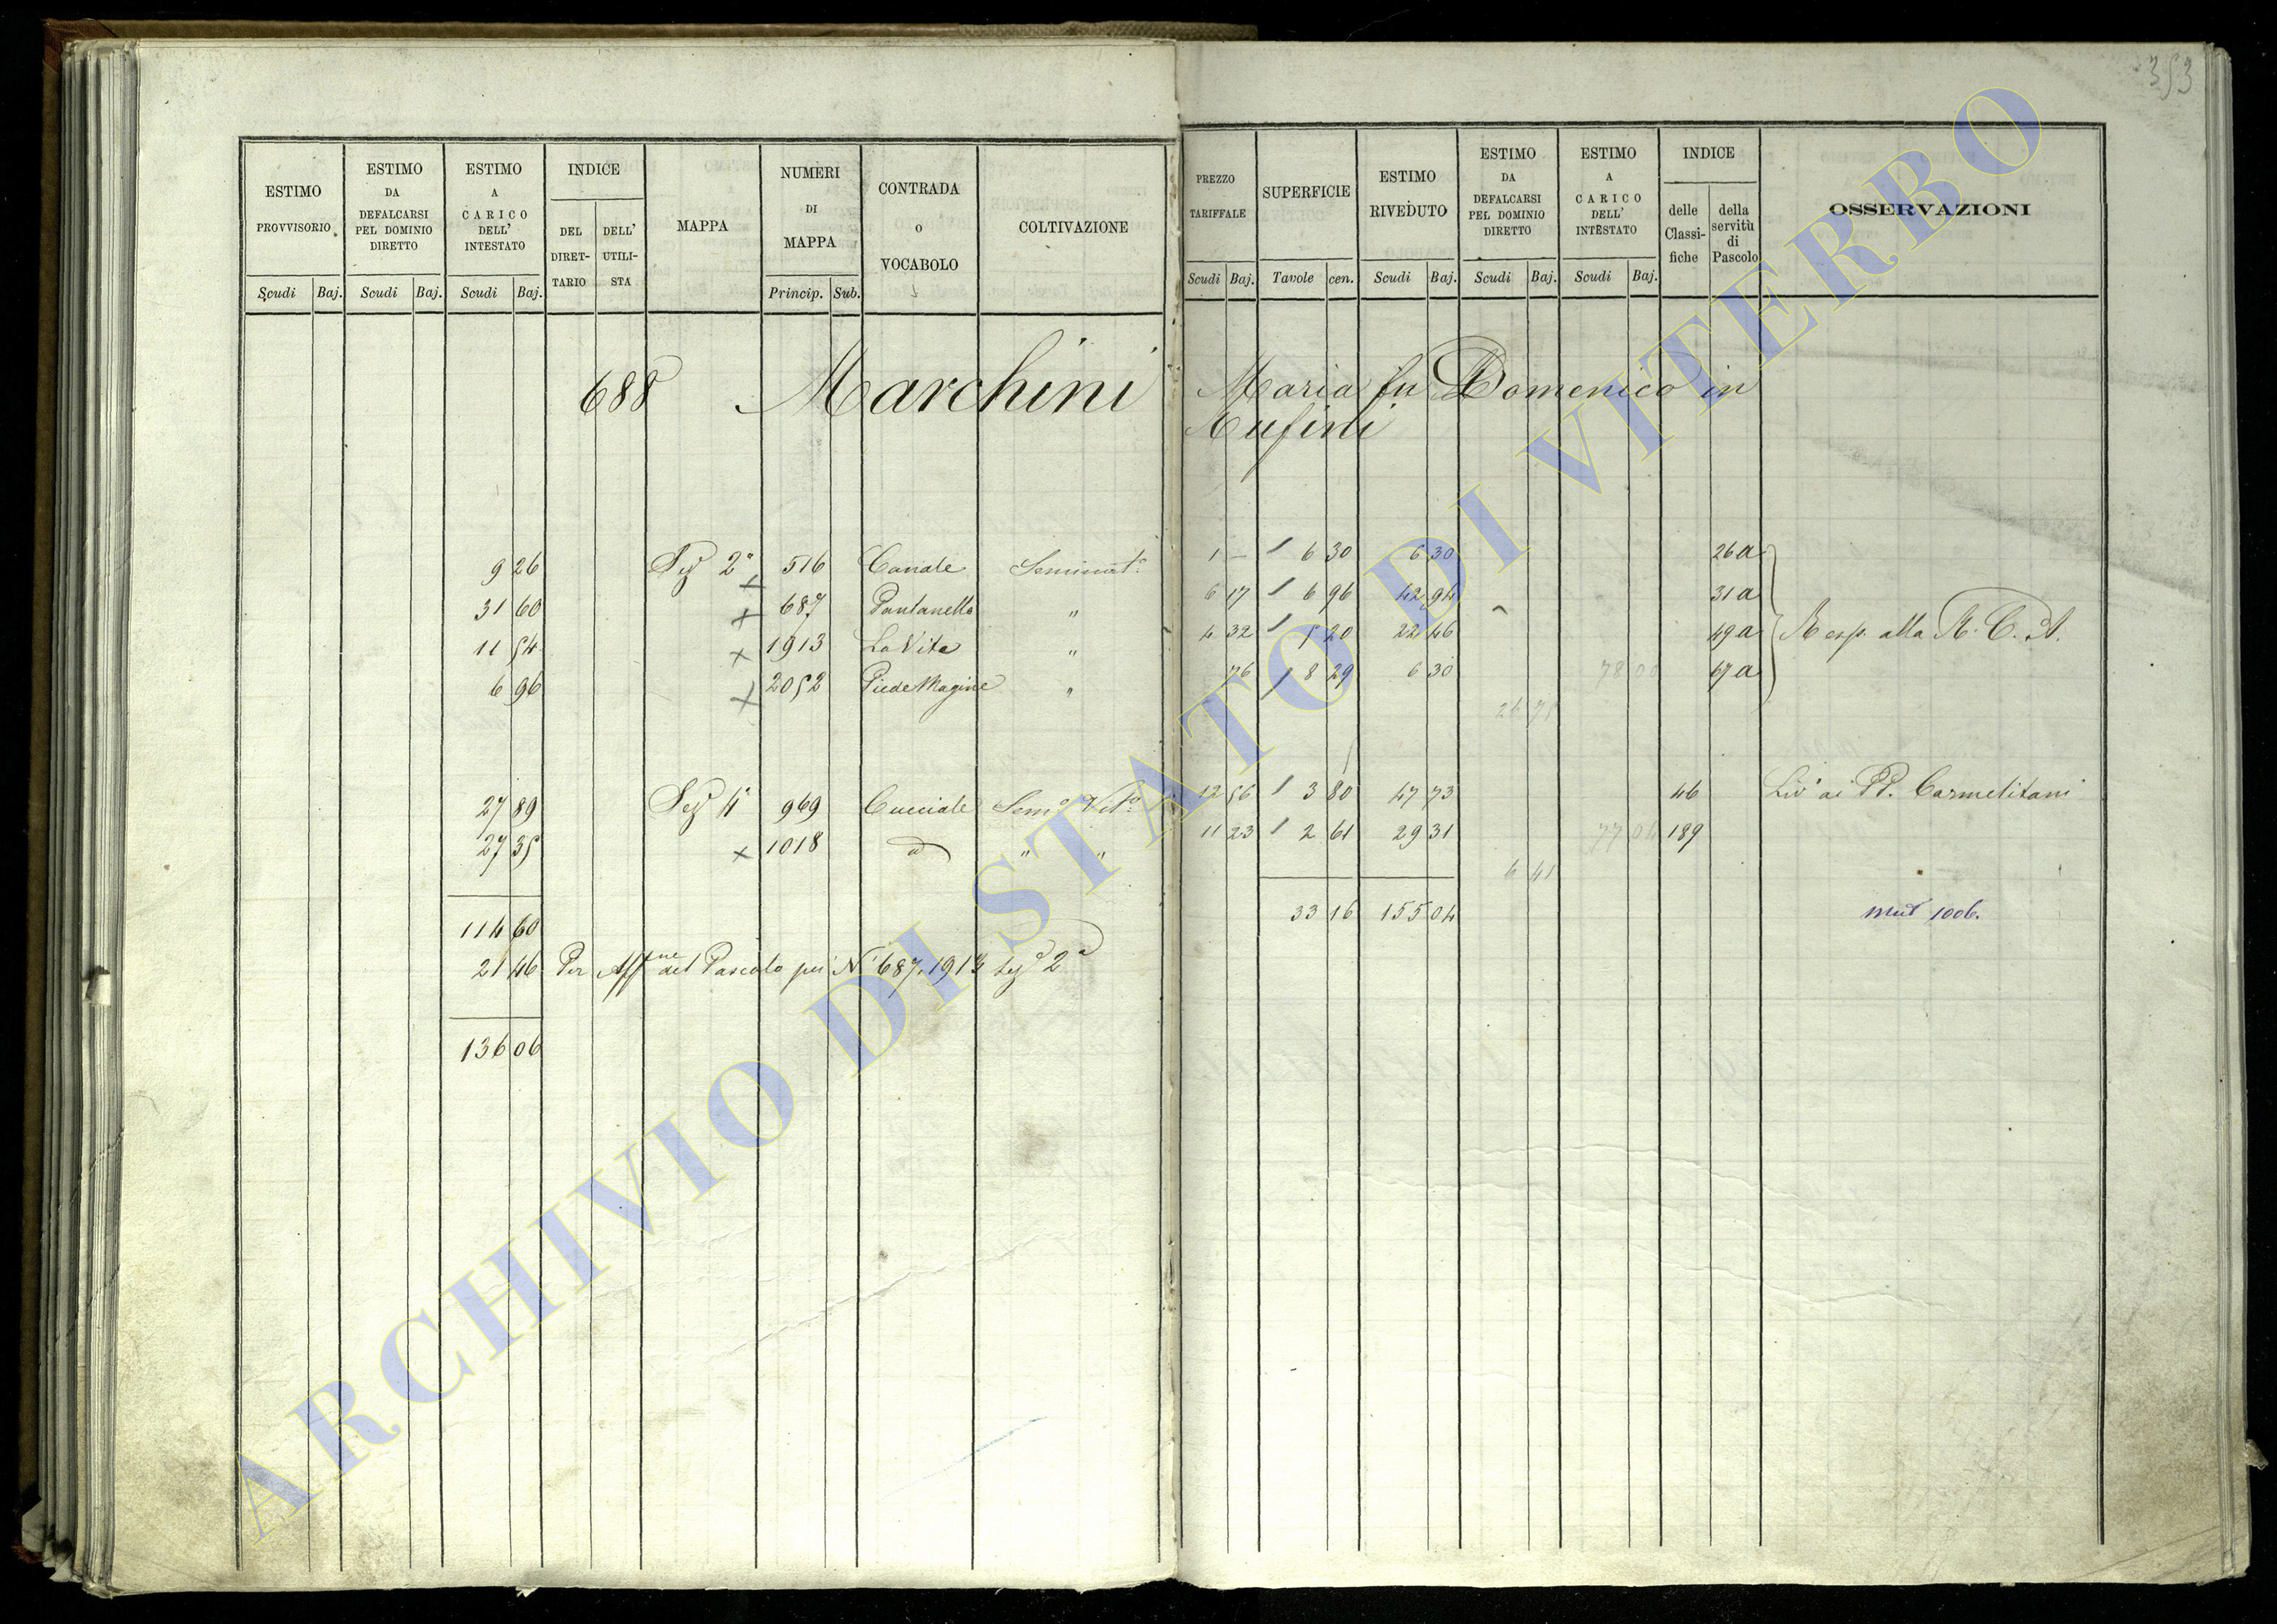 353
ESTIMO PROVVISORIO
Scudi Baj.
ESTIMO DA DEFALCARSI PEL DOMINIO DIRETTO
Scudi Baj.
ESTIMO A CARICO DELL' INTESTATO
Scudi Baj.
INDICE
DEL DIRET-
TARIO
DELL' UTILI-
STA
MAPPA
NUMERI DI MAPPA
Princip. Sub.
CONTRADA O VOCABOLO
COLTIVAZIONE
PREZZO TARIFFALE
Scudi Baj.
SUPERFICIE
Tavole cen.
ESTIMO RIVEDUTO
Scudi Baj.
ESTIMO DA DEFALCARSI PEL DOMINIO DIRETTO
Scudi Baj.
ESTIMO A CARICO DELL' INTESTATO
Scudi Baj.
INDICE
delle Classi-
fiche
della servitù di Pascolo
OSSERVAZIONI
688 Marchini Maria fu Domenico in
Rufini
9 26 Sez 2ª 516 Canale Seminatº 1 — 6 30 6 30 26 a
31 60 687 Pantanella " 6 17 6 96 42 94 31 a
11 54 1913 La Vita " 4 32 5 20 22 46 49 a Resp. alla R. C. A.
6 96 2052 Piede Magine " 76 8 29 6 30 78 00 67 a
26 75
27 89 Sez 4ª 969 Cucciale Semº Vitº 12 56 3 80 47 73 46 Livº ai PP. Carmelitani
27 35 1018 d " " 11 23 2 61 29 31 77 04 189
6 41
114 60 33 16 155 04 mut 1006.
21 46 Per Affne del Pascolo pei Ni 687. 1913 Sezª 2ª
136 06
ARCHIVIO DI STATO DI VITERBO